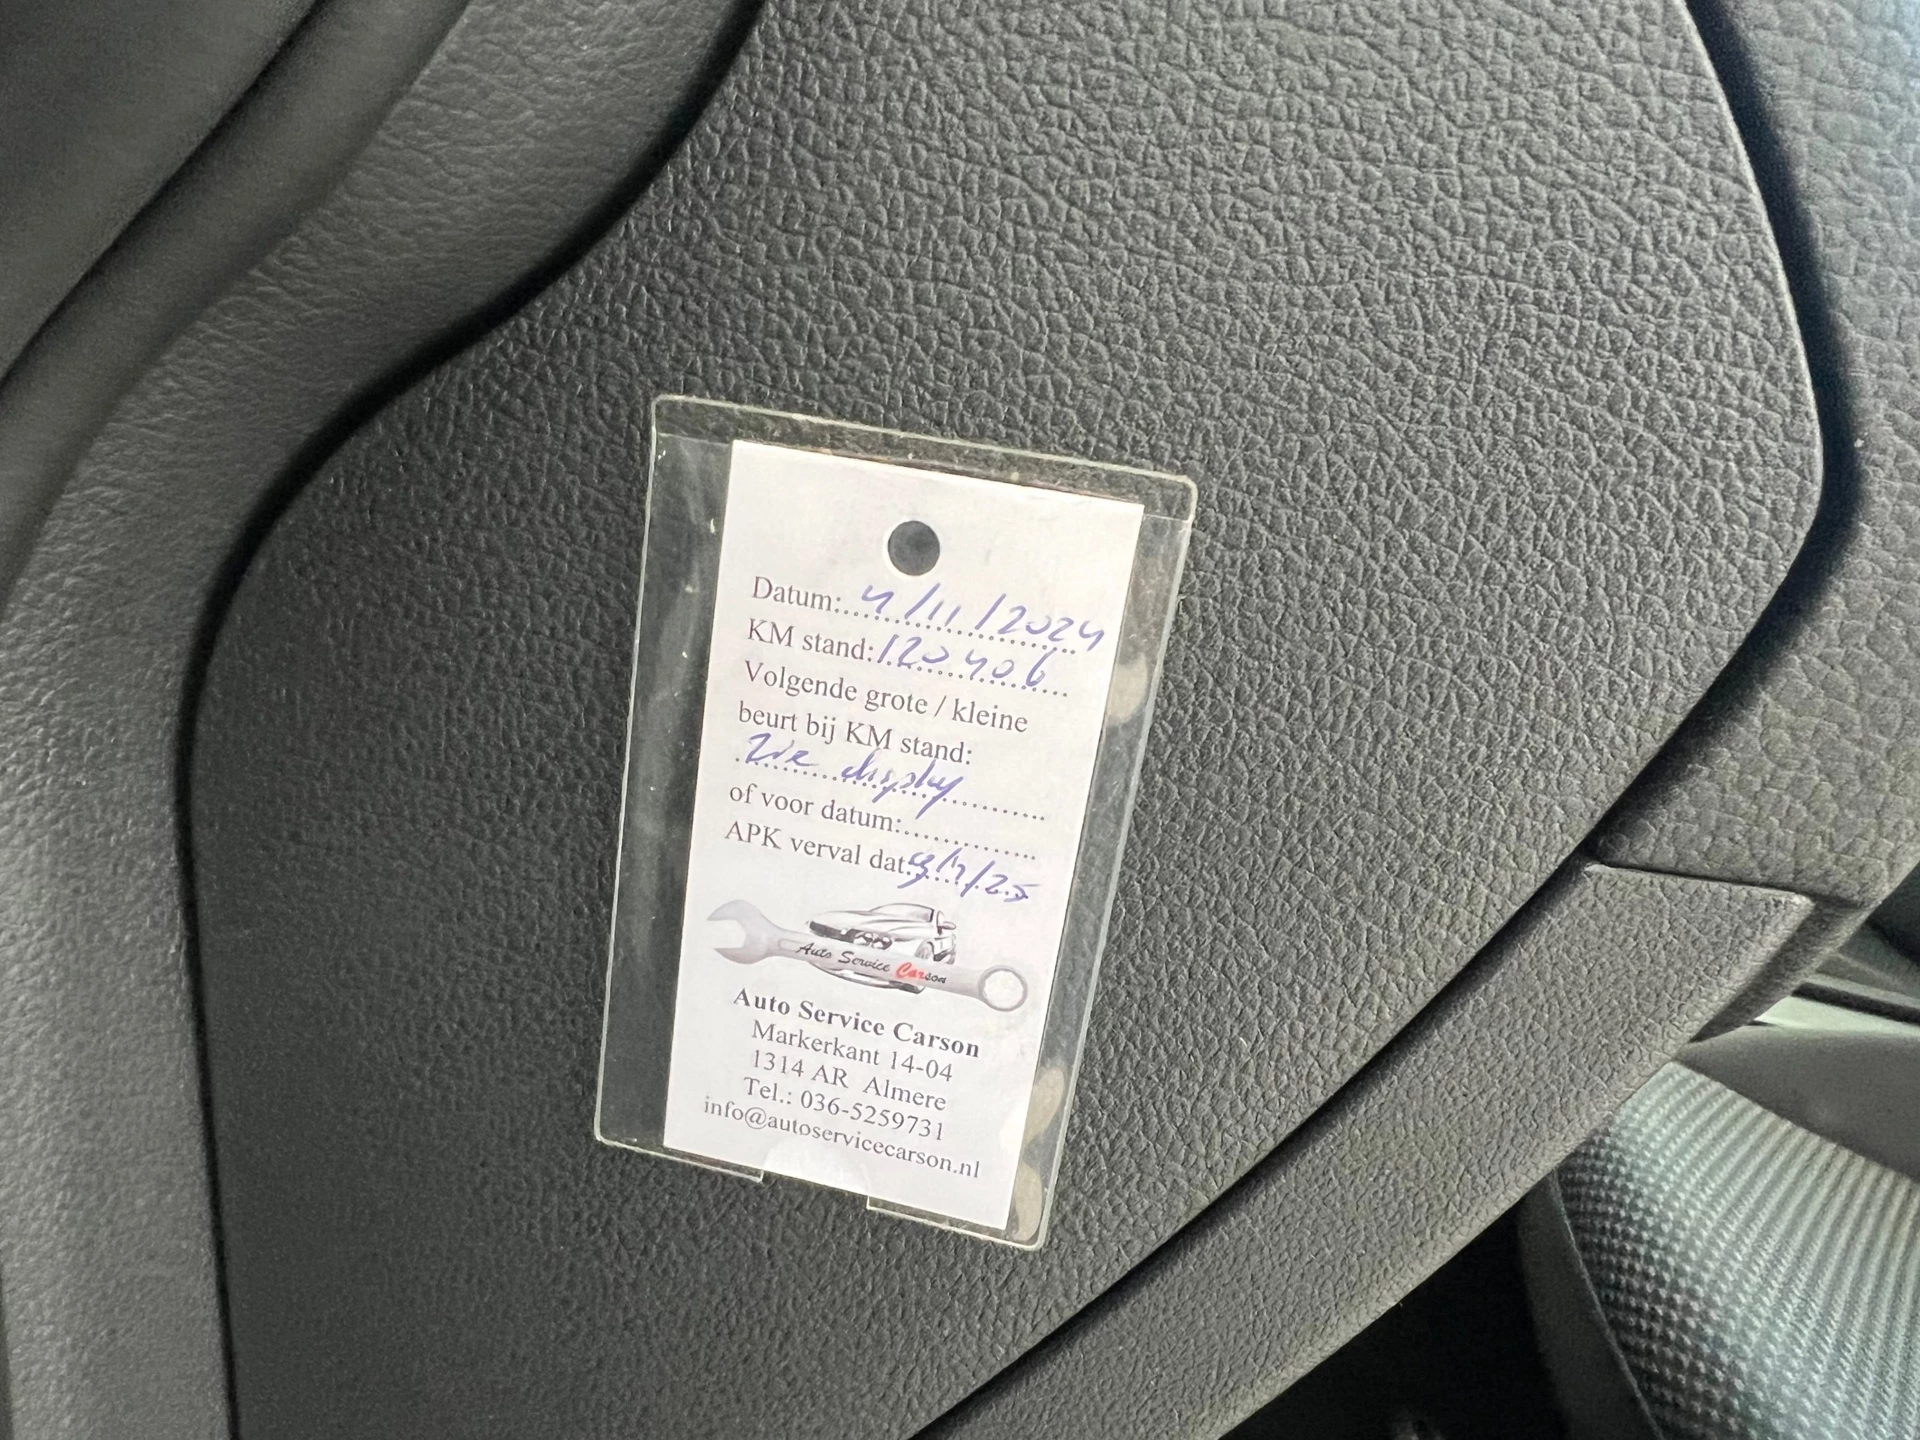 Datum: 4/11/2024
KM stand: 120406
Volgende grote / kleine
beurt bij KM stand:
Zie display
of voor datum:
APK verval dat: /25
Auto Service Carson
Auto Service Carson
Markerkant 14-04
1314 AR Almere
Tel.: 036-5259731
info@autoservicecarson.nl